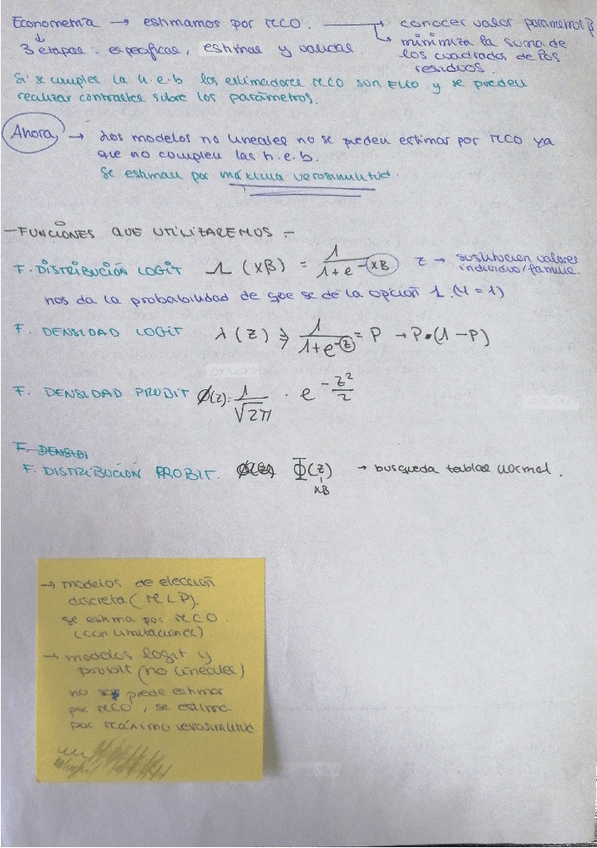 Econometría → estimamos por MCO. → conocer valor parametros β
↳ minimiza la suma de
los cuadrados de los
residuos.
↓
3 etapas: especificar, estimar y validar.
Si se cumplen la h.e.b los estimadores MCO son ELIO y se pueden
realizar contrastes sobre los parámetros.
Ahora → Los modelos no lineales no se pueden estimar por MCO ya
que no cumplen las h.e.b.
Se estiman por máxima verosimilitud.
- FUNCIONES QUE UTILIZAREMOS -
F. DISTRIBUCIÓN LOGIT Λ (xβ) = 1 / (1 + e^-xβ) z → sustitución valores
individuo/familia.
nos da la probabilidad de que se de la opción 1. (Y = 1)
F. DENSIDAD LOGIT λ (z) 1 / (1 + e^-(z)) = P → P·(1 - P)
F. DENSIDAD PROBIT Ø(z): 1 / √2π · e^-z²/2
F. DENSIDI
F. DISTRIBUCIÓN PROBIT. Φ(z) → busqueda tablas normal.
xβ
→ modelos de elección
discreta (MLP).
se estima por MCO.
(con limitaciones)
→ modelos logit y
probit (no lineales)
no se puede estimar
por MCO, se estima
por máxima verosimilitud